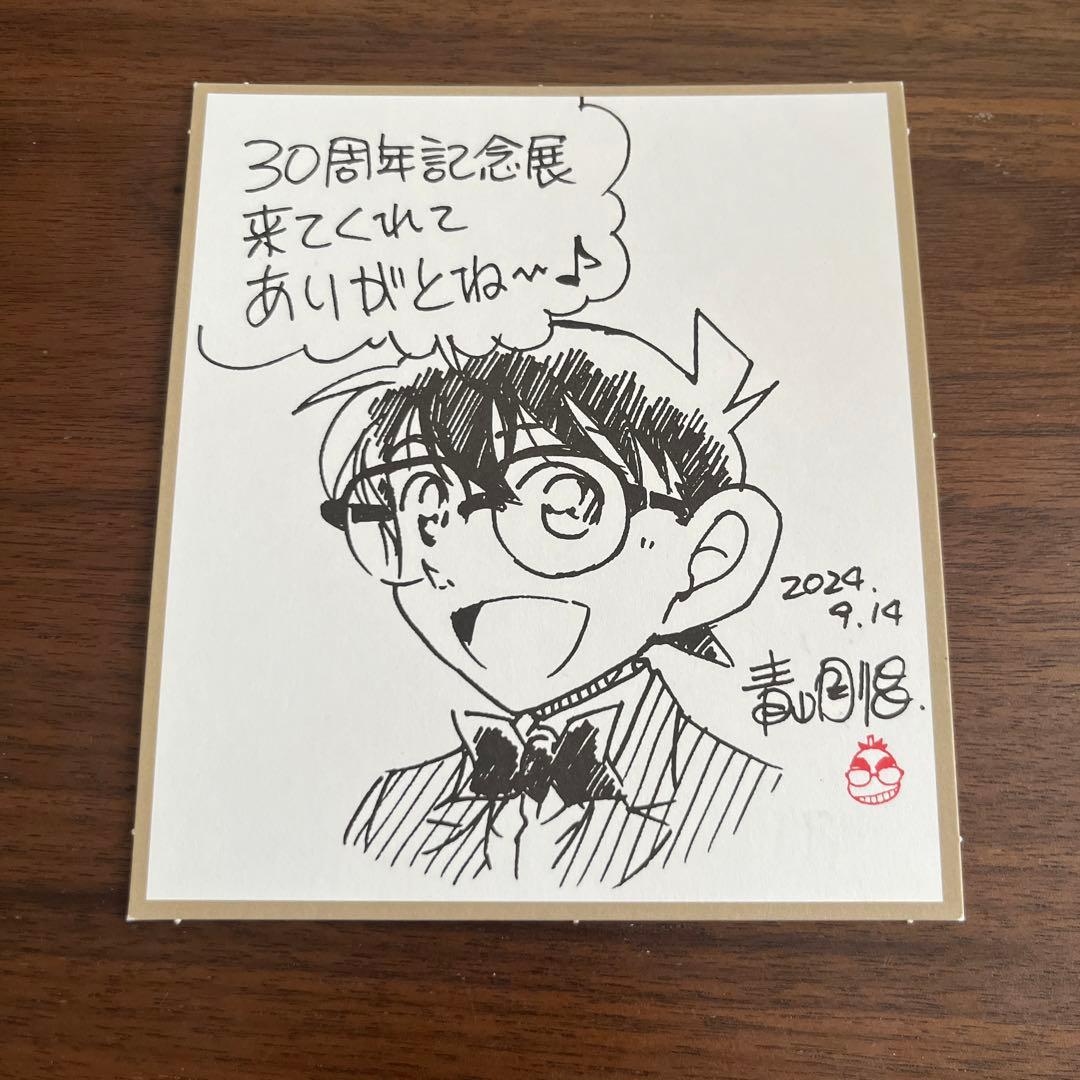 30周年記念展
来てくれて
ありがとね〜♪
2024.
9.14
青山剛昌.